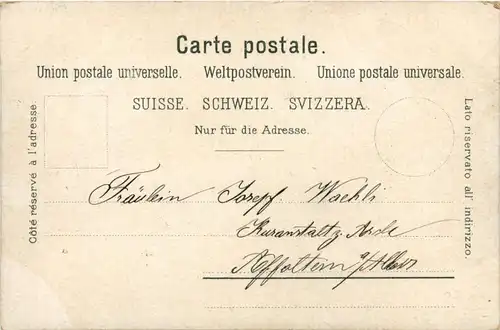 Carte postale.
Union postale universelle. Weltpostverein. Unione postale universale.
SUISSE. SCHWEIZ. SVIZZERA.
Nur für die Adresse.
Côté réservé à l'adresse.
Lato riservato all' indirizzo.
Fräulein Josepf. Waehli
Kuranstalt
Affoltern a/Albis